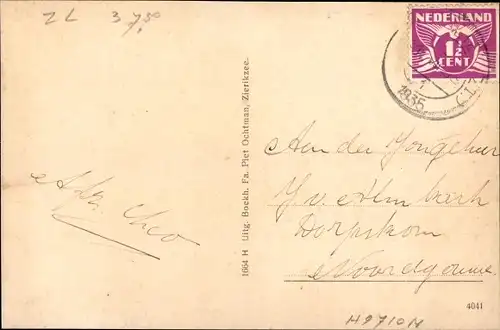 ZL 3 7,50
NEDERLAND
1½
CENT
1935
1664 H Uitg. Boekh. Fa. Piet Ochtman, Zierikzee.
Aan den Jongeheer
J. v. Alm
Dorpskom
Noordgouwe
4041
H9710M